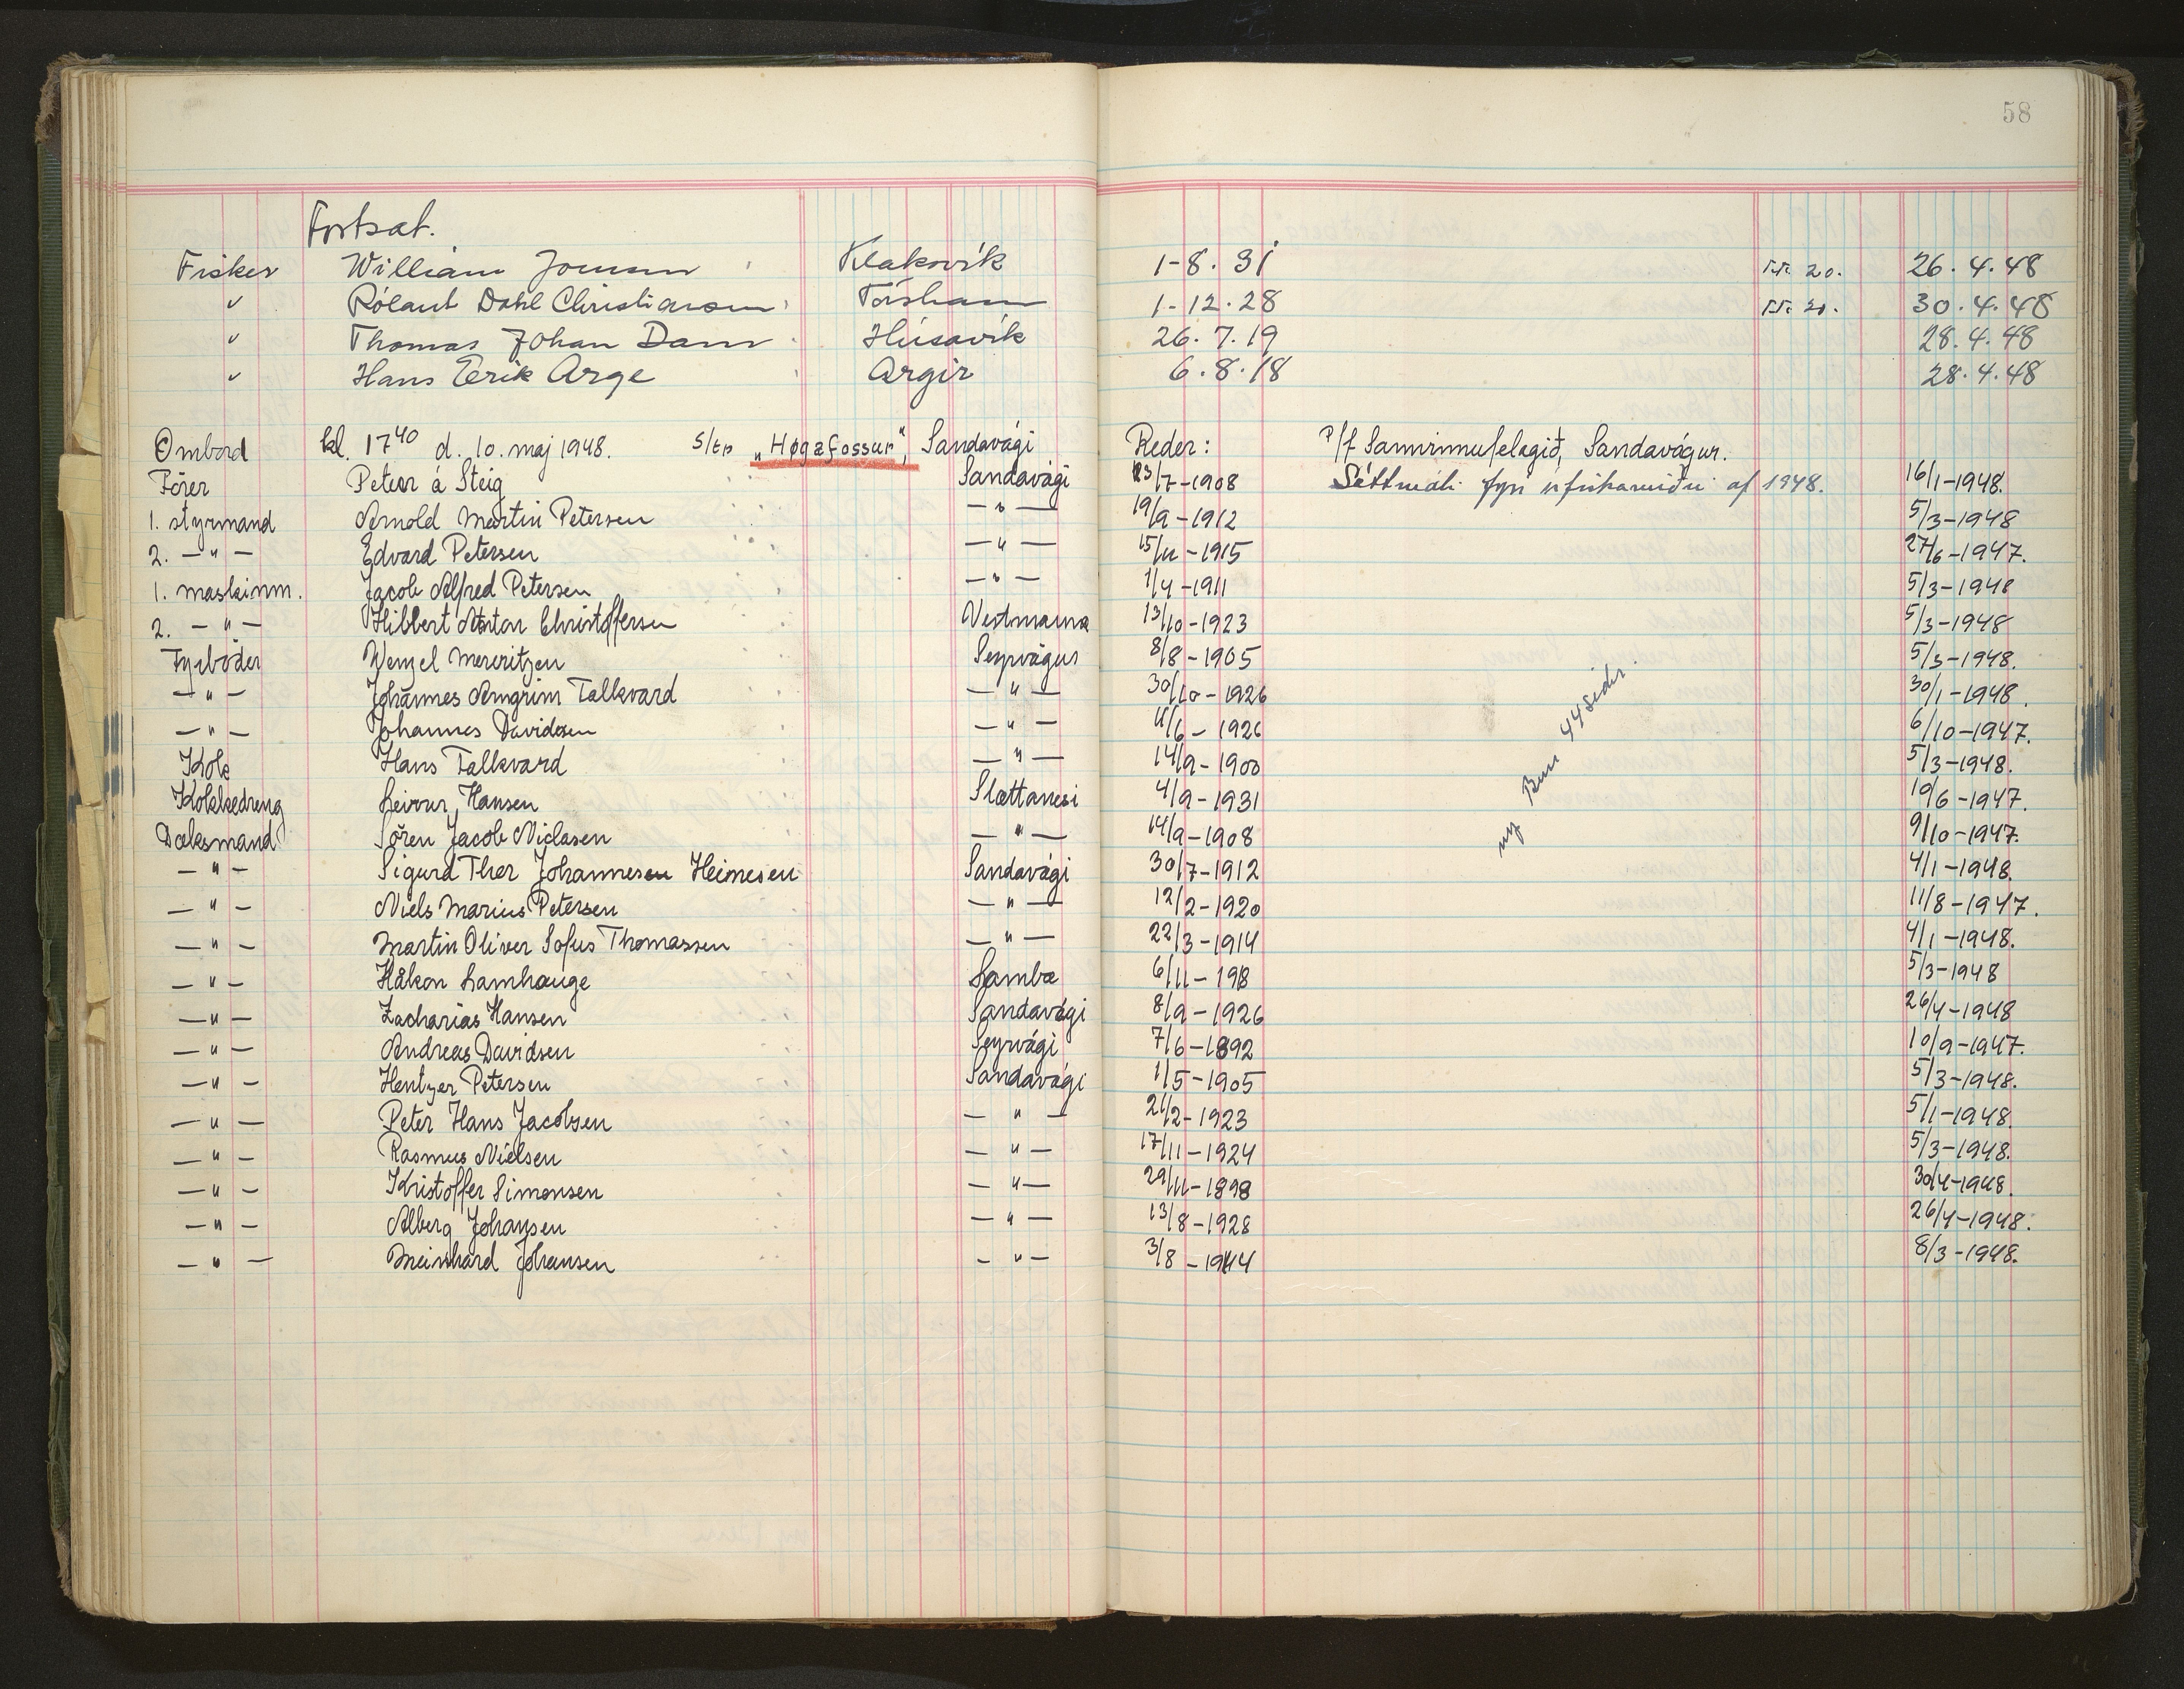 58
Fortsat.
Fisker William Joensen Klaksvík 1-8.31 20. 26.4.48
" Rólant Dahl Christiansen Tórshavn 1-12.28 20. 30.4.48
" Thomas Johan Dam Húsavík 26.7.19 28.4.48
" Hans Erik Arge Argir 6.8.18 28.4.48
Ombord kl. 17⁴⁰ d. 10. maj 1948. S/tr „Høgafossur“, Sandavági Reder: P/f Samvinnufelagið, Sandavágur.
Förer Peter á Steig Sandavági 23/7-1908 Sáttmáli fyri 1948. 16/1-1948.
1. styrmand Arnold Martin Petersen — " — 19/9-1912 5/3-1948
2. — " — Edvard Petersen — " — 15/11-1915 27/6-1947.
1. maskinm. Jacob Alfred Petersen — " — 1/4-1911 5/3-1948
2. — " — Hilbert Anton Christoffersen Vestmanna 13/10-1923 5/3-1948
Fyrböder Wenzel Mewritzen Seyrvágur 8/8-1905 5/3-1948.
— " — Jóhannes Arngrim Talkvard — " — 30/10-1926 30/1-1948.
— " — Johannes Davidsen — " — 11/6-1926 6/10-1947.
Kok Hans Falkvard — " — 14/9-1900 5/3-1948.
Kokkedreng Leivur Hansen Slættanesi 4/9-1931 10/6-1947.
Dæksmand Sören Jacob Niclasen — " — 14/9-1908 9/10-1947.
— " — Sigurd Thor Johannesen Heimesen Sandavági 30/7-1912 4/1-1948.
— " — Niels Marius Petersen — " — 12/2-1920 11/8-1947.
— " — Martin Oliver Sofus Thomassen — " — 22/3-1914 4/1-1948.
— " — Håkon Lamhauge Lamba 6/11-1918 5/3-1948
— " — Zacharias Hansen Sandavági 8/9-1926 26/4-1948
— " — Andreas Davidsen Seyrvági 7/6-1892 10/9-1947.
— " — Hentzer Petersen Sandavági 1/5-1905 5/3-1948.
— " — Peter Hans Jacobsen — " — 21/2-1923 5/1-1948.
— " — Rasmus Nielsen — " — 17/11-1924 5/3-1948.
— " — Kristoffer Simonsen — " — 29/11-1898 30/4-1948.
— " — Alberg Johansen — " — 13/8-1928 26/4-1948.
— " — Meinhard Johansen — " — 3/8-1914 8/3-1948.
ny 44 sidu.